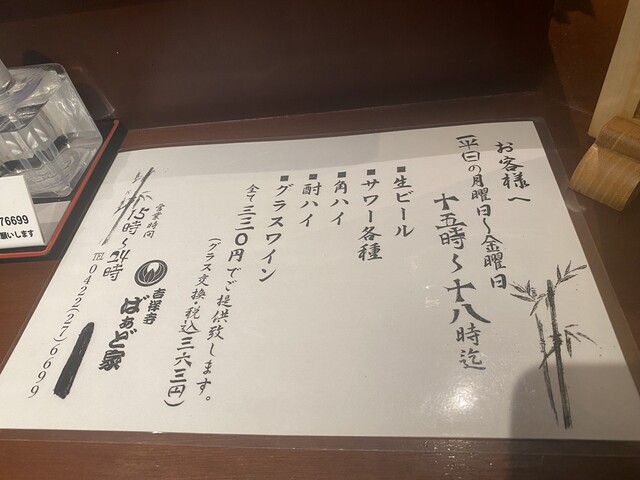 お客様へ
平日の月曜日～金曜日
十五時～十八時迄
■生ビール
■サワー各種
■角ハイ
■酎ハイ
■グラスワイン
全て三三〇円でご提供致します。
(グラス交換・税込三六三円)
営業時間
15時～24時
吉祥寺
ばぁど家
℡0422(27)6699
76699
願いします